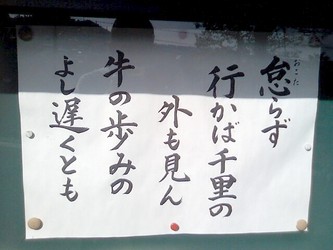 怠らず
行かば千里の
外も見ん
牛の歩みの
よし遅くとも